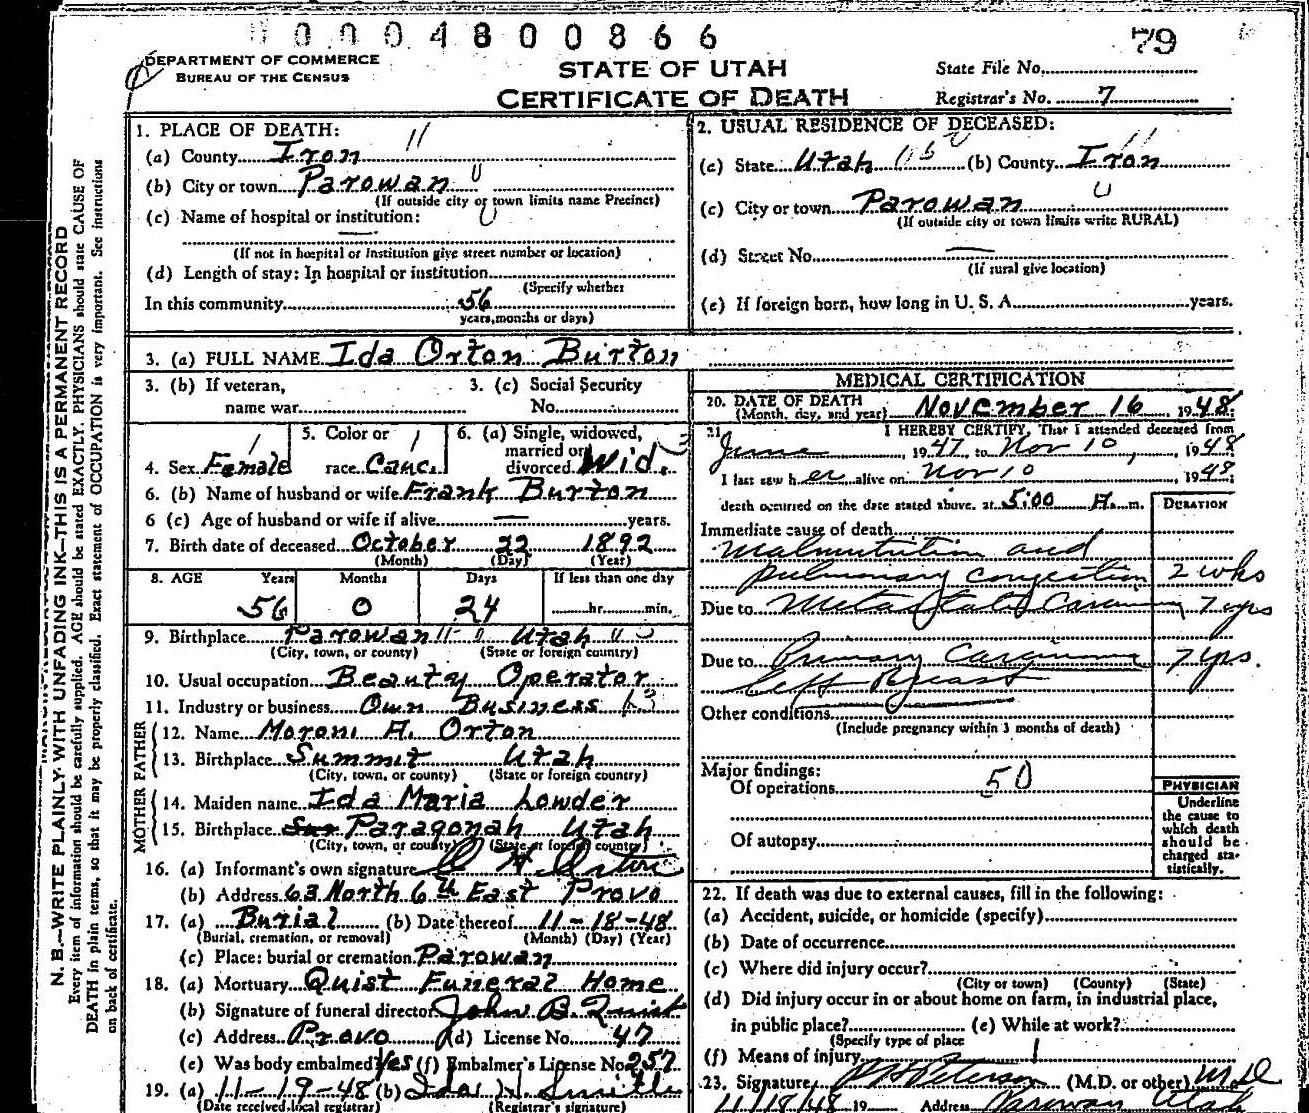 0004800866
79
DEPARTMENT OF COMMERCE
BUREAU OF THE CENSUS
STATE OF UTAH
CERTIFICATE OF DEATH
State File No.
Registrar's No. 7
N. B.—WRITE PLAINLY WITH UNFADING INK—THIS IS A PERMANENT RECORD
Every item of information should be carefully supplied. AGE should be stated EXACTLY. PHYSICIANS should state CAUSE OF
DEATH in plain terms, so that it may be properly classified. Exact statement of OCCUPATION is very important. See instructions
on back of certificate.
1. PLACE OF DEATH: 11
(a) County Iron
(b) City or town Parowan U
(If outside city or town limits name Precinct)
(c) Name of hospital or institution: U
—
(If not in hospital or institution give street number or location)
(d) Length of stay: In hospital or institution
(Specify whether
In this community 56
years, months or days)
2. USUAL RESIDENCE OF DECEASED:
(a) State Utah (b) County Iron 11
(c) City or town Parowan U
(If outside city or town limits write RURAL)
(d) Street No. —
(If rural give location)
(e) If foreign born, how long in U. S. A. years.
3. (a) FULL NAME Ida Orton Burton
3. (b) If veteran,
name war
3. (c) Social Security
No.
4. Sex Female 1
5. Color or
race Cauc. 1
6. (a) Single, widowed,
married or
divorced Wid. 3
6. (b) Name of husband or wife Frank Burton
6 (c) Age of husband or wife if alive — years.
7. Birth date of deceased October 22 1892
(Month) (Day) (Year)
8. AGE Years Months Days If less than one day
56 0 24 hr. min.
9. Birthplace Parowan Utah
(City, town, or county) (State or foreign country)
10. Usual occupation Beauty Operator
11. Industry or business Own Business
FATHER
12. Name Moroni A. Orton
13. Birthplace Summit Utah
(City, town, or county) (State or foreign country)
MOTHER
14. Maiden name Ida Maria Lowder
15. Birthplace Paragonah Utah
(City, town, or county) (State or foreign country)
16. (a) Informant's own signature O H Orton
(b) Address 63 North 6th East Provo
17. (a) Burial (b) Date thereof 11-18-48
(Burial, cremation, or removal) (Month) (Day) (Year)
(c) Place: burial or cremation Parowan
18. (a) Mortuary Quist Funeral Home
(b) Signature of funeral director John B. Quist
(c) Address Provo (d) License No. 47
(e) Was body embalmed Yes (f) Embalmer's License No. 257
19. (a) 11-19-48 (b) Ida N. Smith
(Date received local registrar) (Registrar's signature)
MEDICAL CERTIFICATION
20. DATE OF DEATH
(Month, day, and year) November 16, 1948.
21. I HEREBY CERTIFY, That I attended deceased from
June, 1947, to Nov 10, 1948
I last saw her alive on Nov 10 1948;
death occurred on the date stated above, at 5:00 A. m.
DURATION
Immediate cause of death
Malnutrition and
pulmonary congestion 2 wks
Due to Metastatic Carcinoma 7 yrs
Due to Primary Carcinoma 7 yrs.
left Breast
Other conditions
(Include pregnancy within 3 months of death)
Major findings:
Of operations 50
Of autopsy
PHYSICIAN
Underline
the cause to
which death
should be
charged sta-
tistically.
22. If death was due to external causes, fill in the following:
(a) Accident, suicide, or homicide (specify)
(b) Date of occurrence
(c) Where did injury occur?
(City or town) (County) (State)
(d) Did injury occur in or about home on farm, in industrial place,
in public place? (e) While at work?
(Specify type of place
(f) Means of injury
23. Signature Peterson (M.D. or other) M D
11/18/48 19 Address Parowan Utah